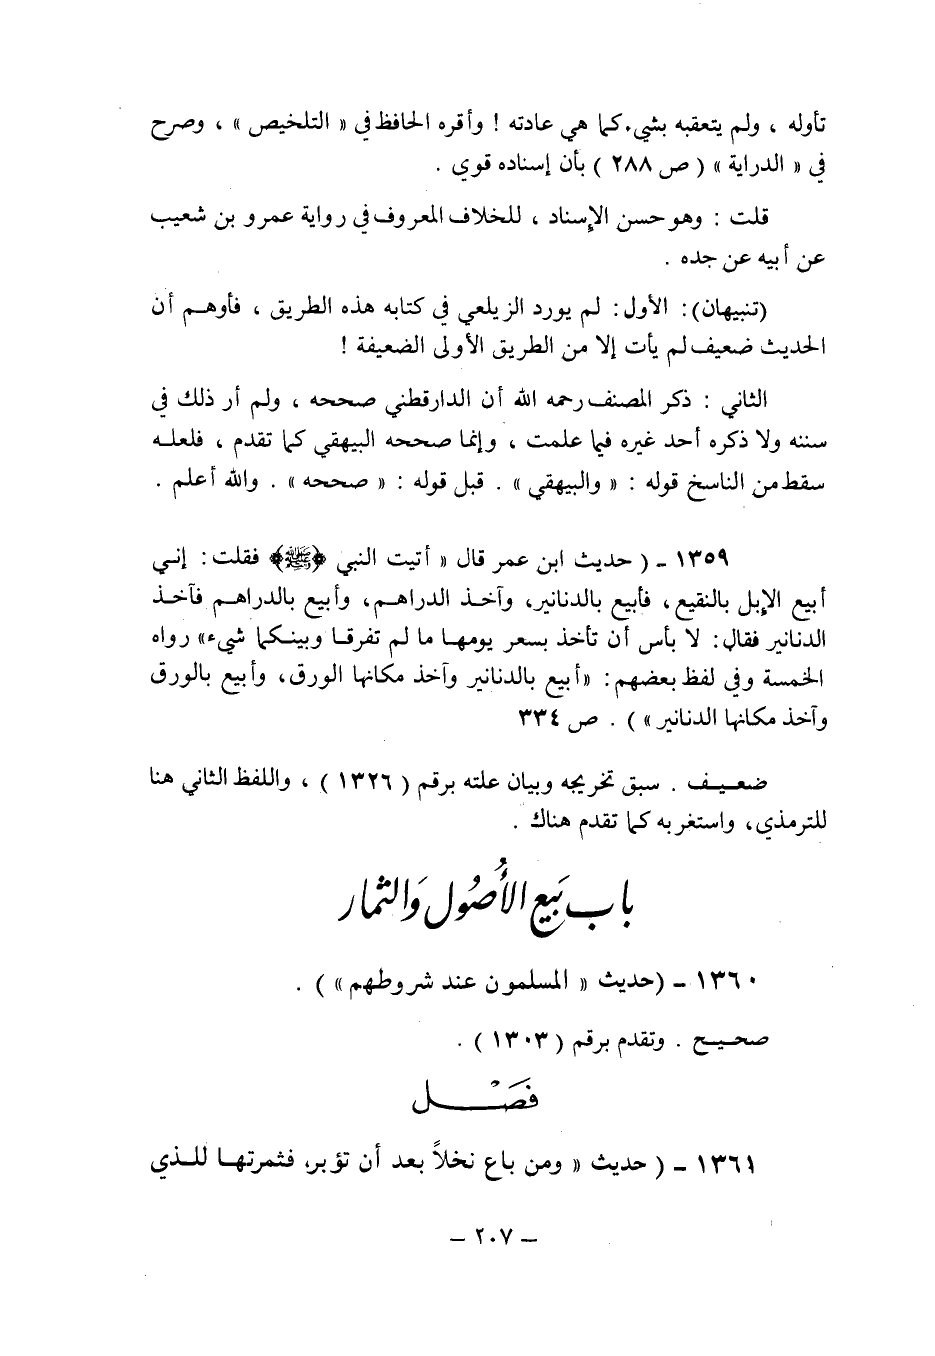 تأوله ، ولم يتعقبه بشيء كما هي عادته ! وأقره الحافظ في « التلخيص » ، وصرح
في « الدراية » ( ص ٢٨٨ ) بأن إسناده قوي .
قلت : وهو حسن الإسناد ، للخلاف المعروف في رواية عمرو بن شعيب
عن أبيه عن جده .
(تنبيهان): الأول: لم يورد الزيلعي في كتابه هذه الطريق ، فأوهم أن
الحديث ضعيف لم يأت إلا من الطريق الأولى الضعيفة !
الثاني : ذكر المصنف رحمه الله أن الدارقطني صححه ، ولم أر ذلك في
سننه ولا ذكره أحد غيره فيما علمت ، وإنما صححه البيهقي كما تقدم ، فلعله
سقط من الناسخ قوله : « والبيهقي » . قبل قوله : « صححه » . والله أعلم .
١٣٥٩ ـ ( حديث ابن عمر قال « أتيت النبي ﴿ﷺ﴾ فقلت: إني
أبيع الإبل بالنقيع، فأبيع بالدنانير، وآخذ الدراهم، وأبيع بالدراهم فآخذ
الدنانير فقال: لا بأس أن تأخذ بسعر يومها ما لم تفرقا وبينكما شيء» رواه
الخمسة وفي لفظ بعضهم: «أبيع بالدنانير وآخذ مكانها الورق، وأبيع بالورق
وآخذ مكانها الدنانير» ) . ص ٣٣٤
ضعيف . سبق تخريجه وبيان علته برقم ( ١٣٢٦ ) ، واللفظ الثاني هنا
للترمذي، واستغربه كما تقدم هناك .
باب بَيع الأُصُول وَالثمار
١٣٦٠ ـ (حديث « المسلمون عند شروطهم » ) .
صحيح . وتقدم برقم ( ١٣٠٣ ) .
فَصْل
١٣٦١ ـ ( حديث « ومن باع نخلاً بعد أن تؤبر، فثمرتها للذي
ـ ٢٠٧ ـ